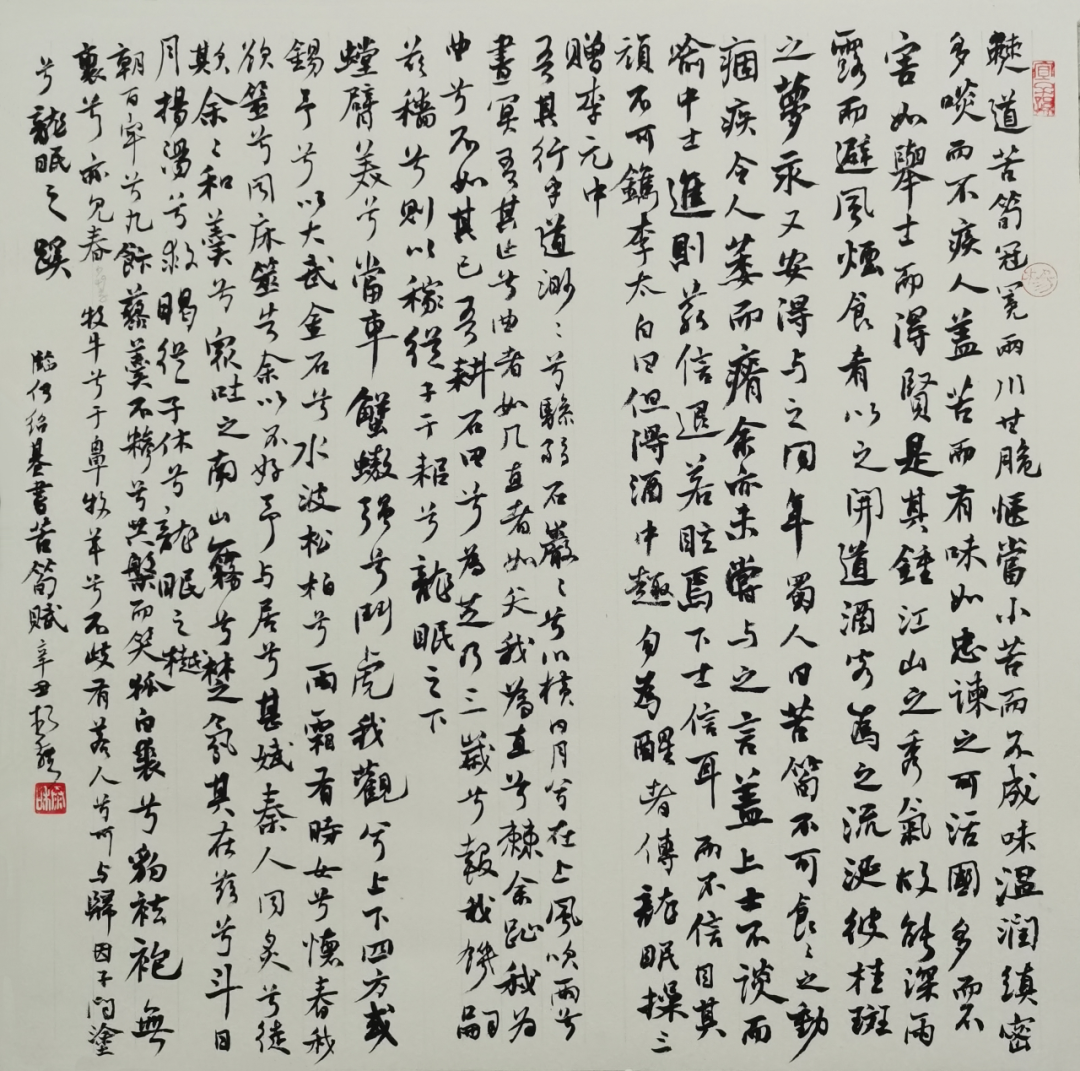 僰道苦筍冠冕兩川甘脆愜當小苦而不成味温润縝密
多啖而不疾人盖苦而有味如忠諫之可活國多而不
害如舉士而得賢是其鍾江山之秀氣故能深雨
露而避風煙食肴以之開道酒客為之流涎彼桂斑
之夢汞又安得与之同年蜀人曰苦筍不可食々之動
痼疾令人萎而瘠余亦未嘗与之言盖上士不談而
喻中士進則若信退若眩焉下士信耳而不信目其
頑不可鐫李太白曰但得酒中趣勿為醒者傳龍眠操三
贈李元中
吾其行乎道渺々兮驂弱石巖々兮川横日月兮在上風吹雨兮
晝冥吾其止兮曲者如几直者如矢我為直兮棘余趾我為
曲兮不如其已吾耕石田兮為芝乃三歲兮報我饑嗣
茲穡兮則以稼從子于耜兮龍眠之下
螳臂美兮當車蟹螯强兮鬥虎我觀兮上下四方或
錫予兮以大武金石兮水波松柏兮雨霜有時女兮懷春我
欲筮兮同床筮告余以不好予与居兮甚娬秦人同炙兮徒
欺余々和羹兮窮吐之南山霧兮楚氛其在茲兮斗日
月揚湯兮救暍從子休兮龍眠之樾
朝百牢兮九飰藜羹不糝兮共槃而笑狐白裘兮豹祛袍無
裏兮亦見春牧牛兮于鼻牧羊兮不歧有若人兮可与歸因子問塗
兮龍眠之蹊
臨何紹基書苦筍賦辛丑